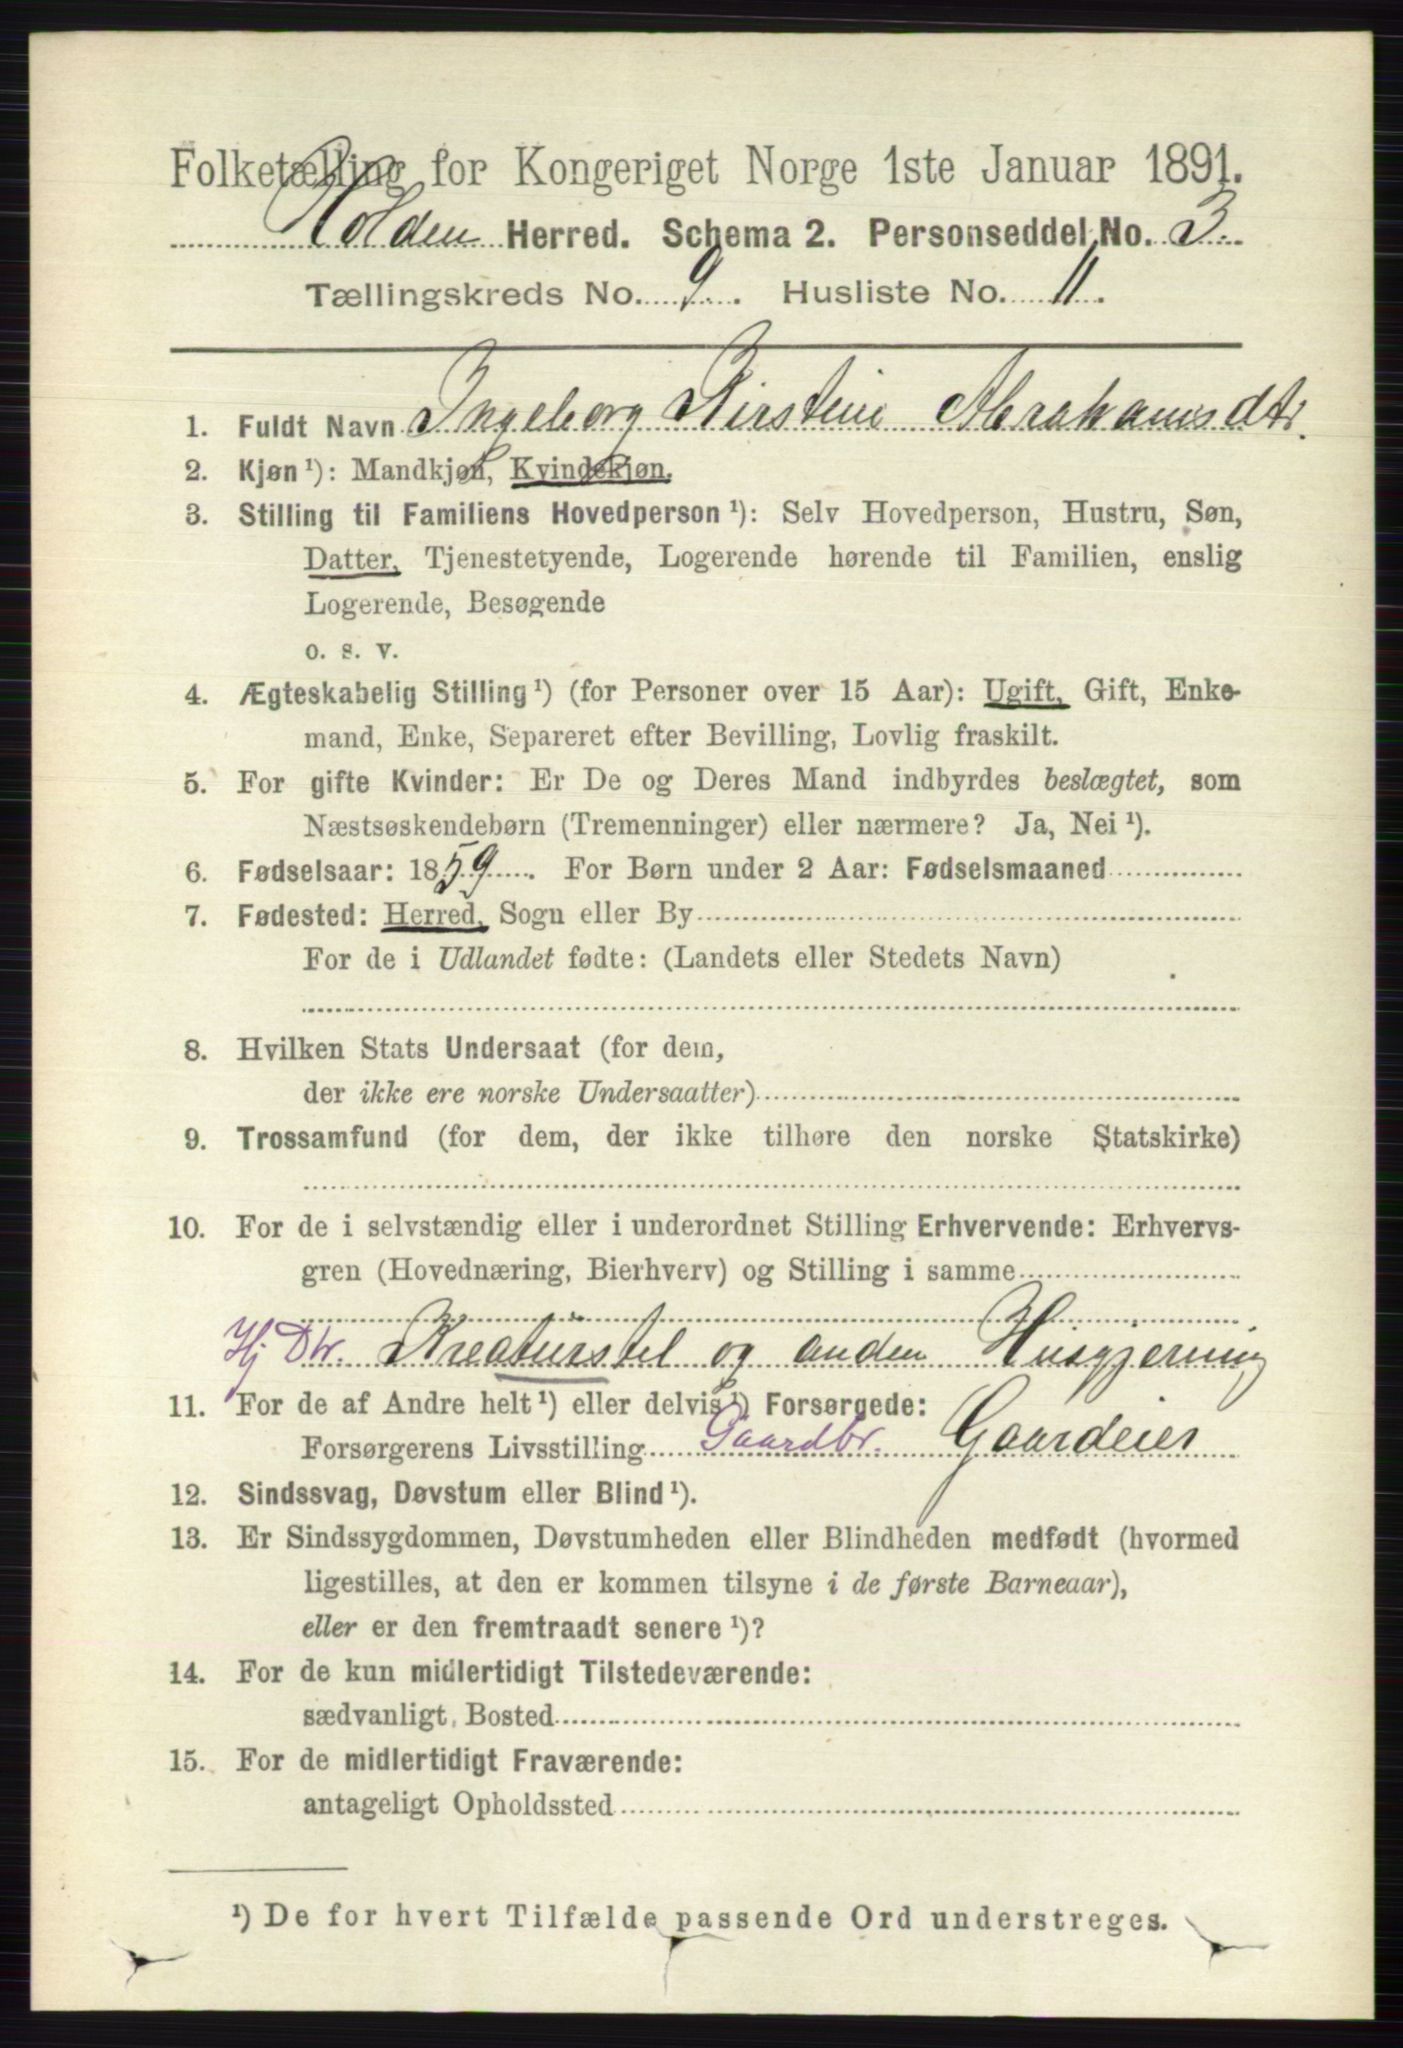 Folketælling for Kongeriget Norge 1ste Januar 1891.
Holden Herred. Schema 2. Personseddel No. 3.
Tællingskreds No. 9. Husliste No. 11.
1. Fuldt Navn Ingeborg Kirstine Abrahamsdtr.
2. Kjøn ¹): Mandkjøn, Kvindekjøn.
3. Stilling til Familiens Hovedperson ¹): Selv Hovedperson, Hustru, Søn,
Datter, Tjenestetyende, Logerende hørende til Familien, enslig
Logerende, Besøgende
o. s. v.
4. Ægteskabelig Stilling ¹) (for Personer over 15 Aar): Ugift, Gift, Enke-
mand, Enke, Separeret efter Bevilling, Lovlig fraskilt.
5. For gifte Kvinder: Er De og Deres Mand indbyrdes beslægtet, som
Næstsøskendebørn (Tremenninger) eller nærmere? Ja, Nei ¹).
6. Fødselsaar: 1859. For Børn under 2 Aar: Fødselsmaaned
7. Fødested: Herred, Sogn eller By
For de i Udlandet fødte: (Landets eller Stedets Navn)
8. Hvilken Stats Undersaat (for dem,
der ikke ere norske Undersaatter)
9. Trossamfund (for dem, der ikke tilhøre den norske Statskirke)
10. For de i selvstændig eller i underordnet Stilling Erhvervende: Erhvervs-
gren (Hovednæring, Bierhverv) og Stilling i samme
Hj Dtr. Kreaturstel og anden Husgjerning
11. For de af Andre helt ¹) eller delvis ¹) Forsørgede:
Forsørgerens Livsstilling Gaardbr. Gaardeier
12. Sindssvag, Døvstum eller Blind ¹).
13. Er Sindssygdommen, Døvstumheden eller Blindheden medfødt (hvormed
ligestilles, at den er kommen tilsyne i de første Barneaar),
eller er den fremtraadt senere ¹)?
14. For de kun midlertidigt Tilstedeværende:
sædvanligt Bosted
15. For de midlertidigt Fraværende:
antageligt Opholdssted
¹) De for hvert Tilfælde passende Ord understreges.